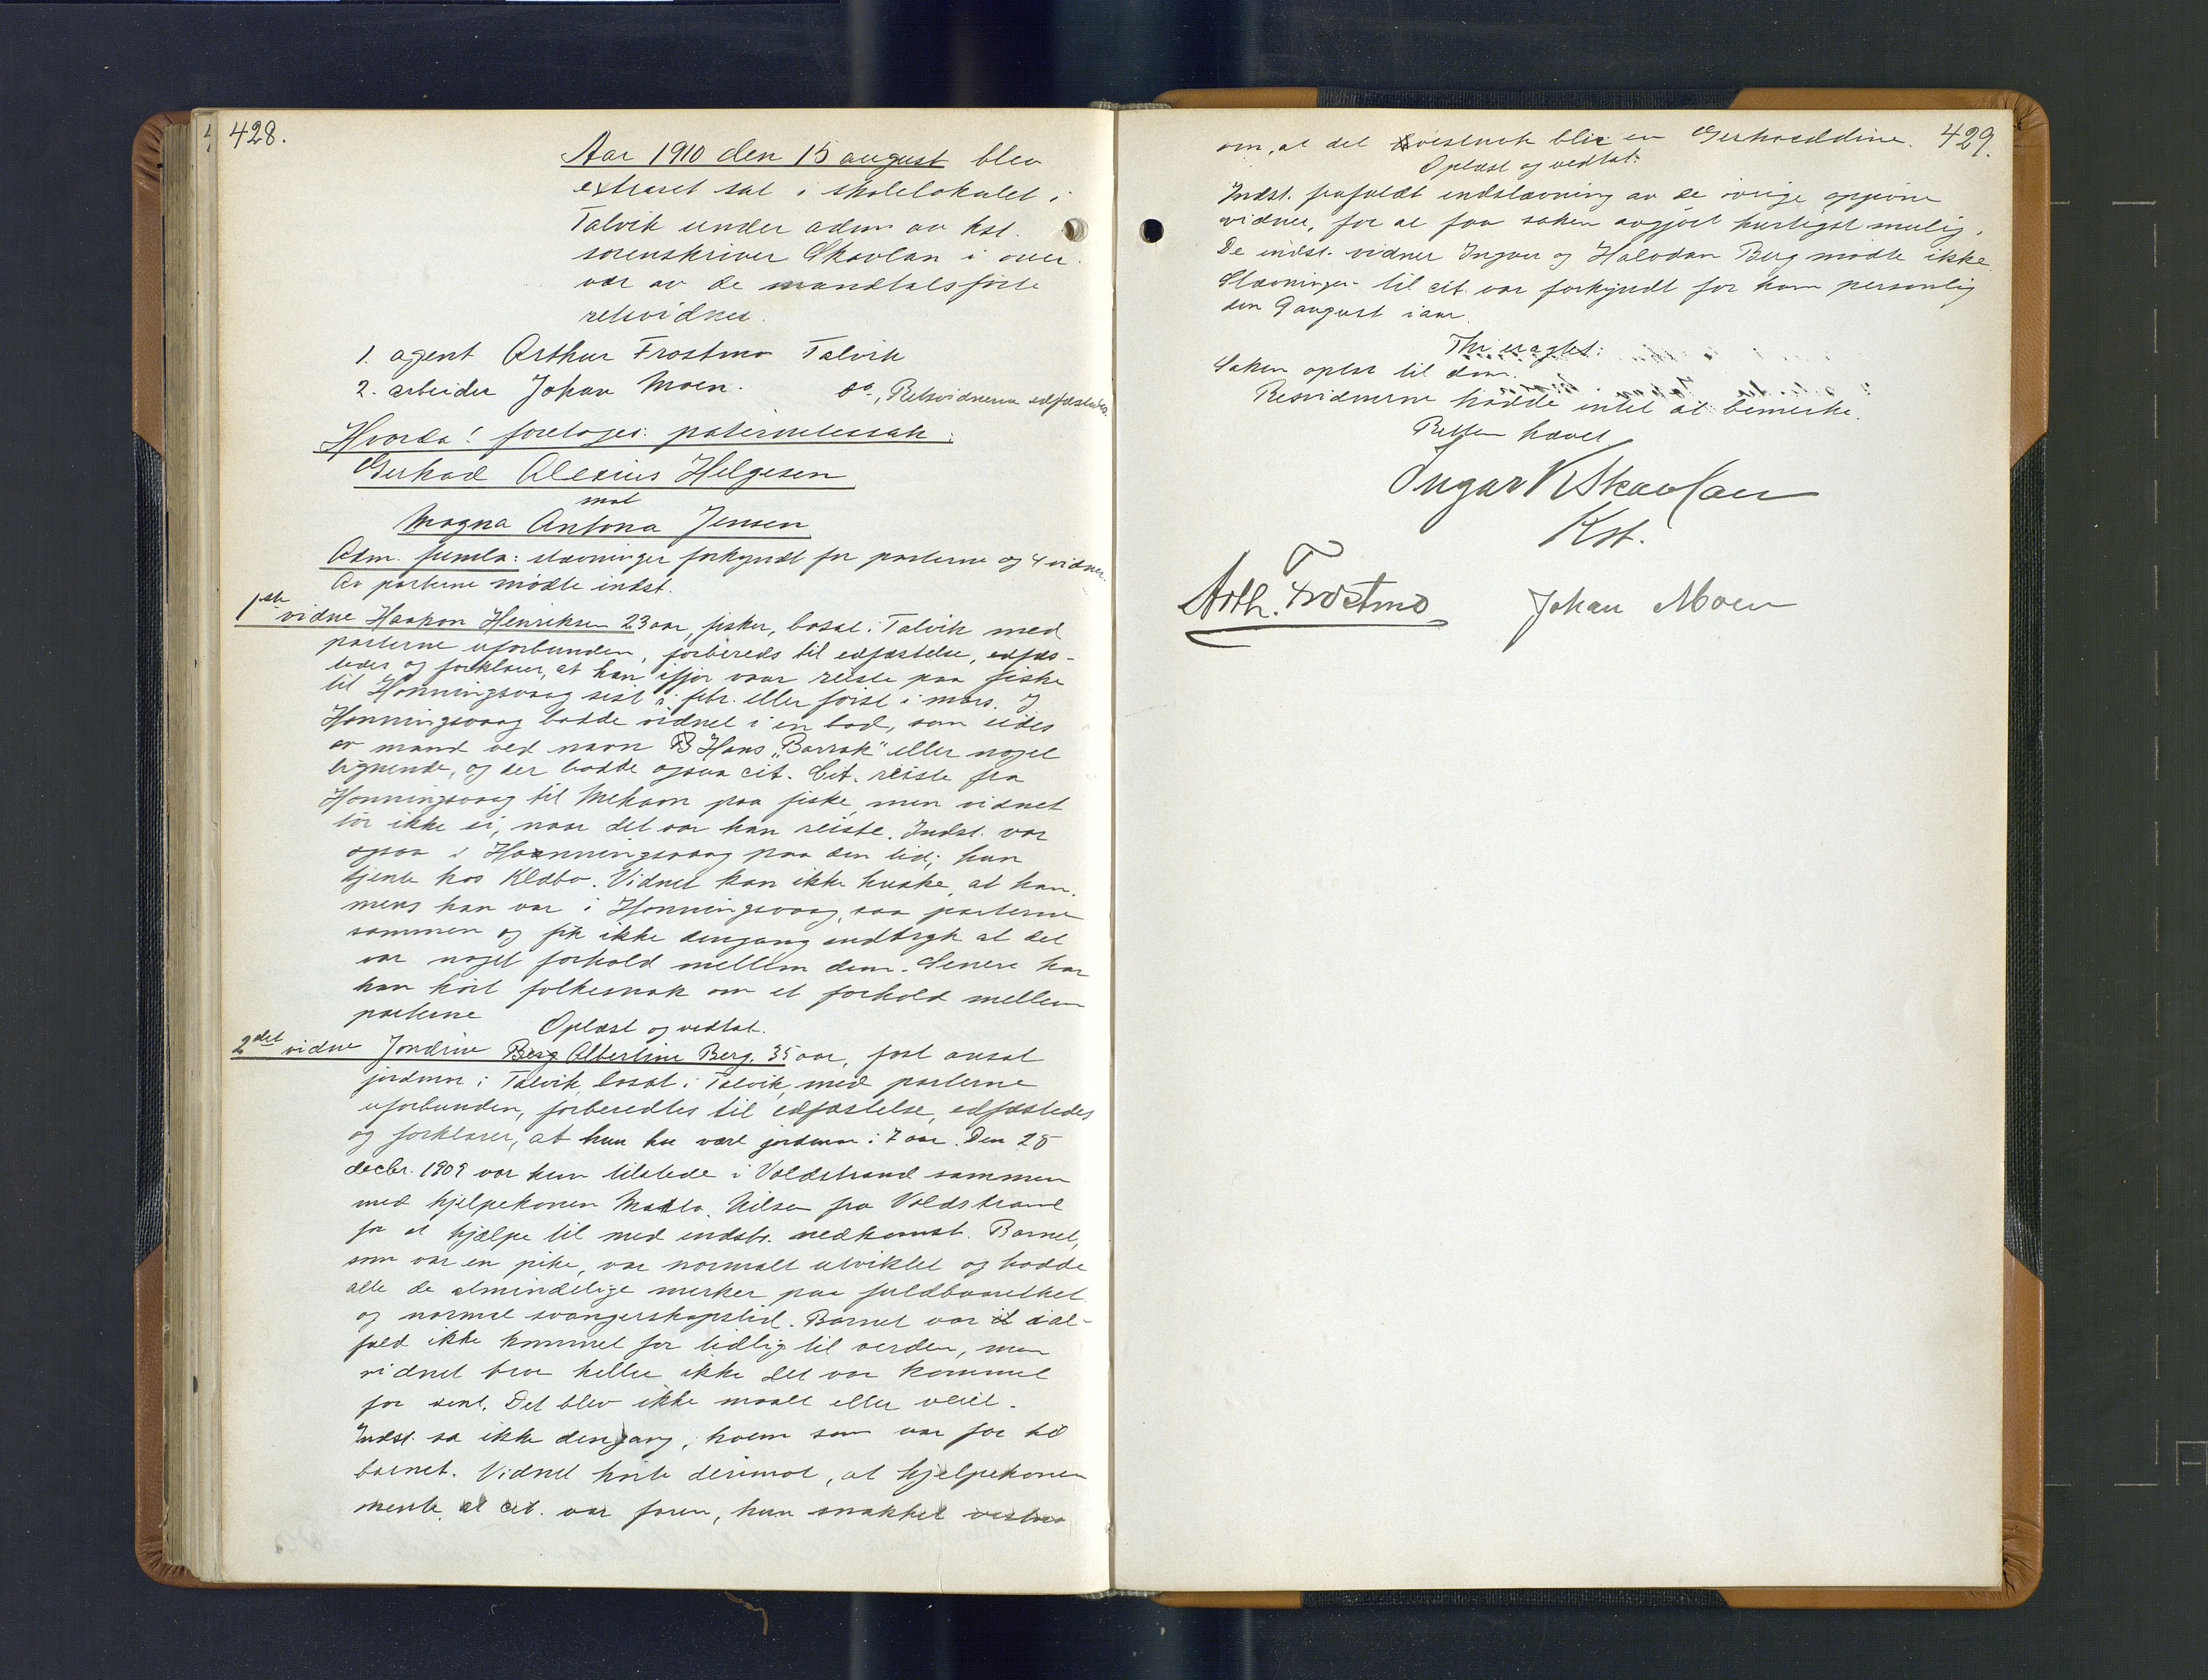 428.
Aar 1910 den 15 august blev
extraret sat i skolelokalet i
Talvik under adm av kst.
sorenskriver Skavlan i over-
vær av de mandtalsførte
retsvidner.
1. agent Arthur Frostmo Talvik
2. arbeider Johan Moen. do, Retsvidnerne edfæstedes
Hvorda: foretoges: paternitetssak:
Gerhard Alexius Helgesen
mot
Magna Antona Jensen
Adm. fremla: stævninger forkyndt for parterne og 4 vidner.
Av parterne møtte indst.
1ste vidne Haakon Henriksen 23 aar, fisker, bosat i Talvik med
parterne uforbunden, forbereds til edfæstelse, edfæs-
tedes og forklarer, at han ifjor vaar reiste paa fiske
til Honningsvaag sist i febr. eller først i mars. I
Honningsvaag bodde vidnet i en bod, som eides
av mand ved navn B Hans "Barrak" eller noget
lignende, og der bodde ogsaa cit. Cit. reiste fra
Honningsvaag til Mehavn paa fiske, men vidnet
tør ikke si, naar det var han reiste. Indst. var
ogsaa i Honningsvaag paa den tid; hun
tjente hos Kldbo. Vidnet kan ikke huske, at han,
mens han var i Honningsvaag, saa parterne
sammen og fik ikke dengang indtryk at det
var noget forhold mellem dem. Senere har
han hørt folkesnak om et forhold mellem
parterne
Oplæst og vedtat.
2det vidne Jondine Berg Albertine Berg. 35 aar, fast ansat
jordmor i Talvik, bosat i Talvik, med parterne
uforbunden, forberedtes til edfæstelse, edfæstedes
og forklarer, at hun har vært jordmor i 7 aar. Den 25
decbr. 1909 var hun tilstede i Voldstrand sammen
med hjelpekonen Nilsen fra Voldstrand
for at hjælpe til med indst. nedkomst. Barnet,
som var en pike, var normalt utviklet og hadde
alle de almindelige merker paa fuldbaarethet
og normal svangerskapstid. Barnet var it ial-
fald ikke kommet for tidlig til verden, men
vidnet tror heller ikke det var kommet
for sent. Det blev ikke maalt eller veiet.
Indst. sa ikke dengang, hvem som var far til
barnet. Vidnet hørte derimot, at hjelpekonen
mente, at cit. var faren, hun snakket
429.
om, at det vistnok blir en Gerharddine.
Oplæst og vedtat:
Indst. frafaldt indstævning av de øvrige opgivne
vidner, for at faa saken avgjort hurtigst mulig.
De indst. vidner Ingvar og Halvdan Berg møtte ikke
Stævningen til cit. var forkyndt for ham personlig
den 9 august iaar.
Thi eragtet:
Saken optas til dom.
Retsvidnerne hadde intet at bemerke.
Retten hævet
Ingar K Skavlan
Kst.
Arth. Frostmo Johan Moen